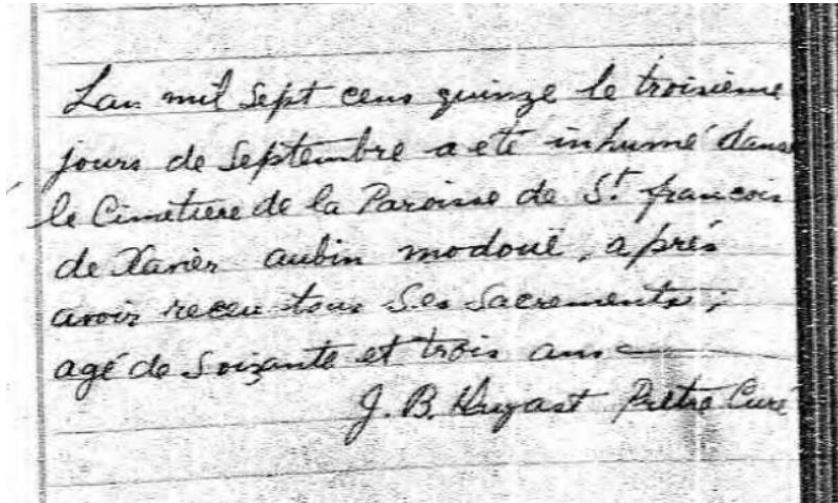 Lan mil Sept cens quinze le troisième
jours de Septembre a eté inhumé dans
le Cimetiere de la Paroisse de St francois
de Xavier aubin modouë, aprés
avoir receu tous Ses Sacrements ;
agé de Soixante et trois ans
J. B. Prêtre Curé